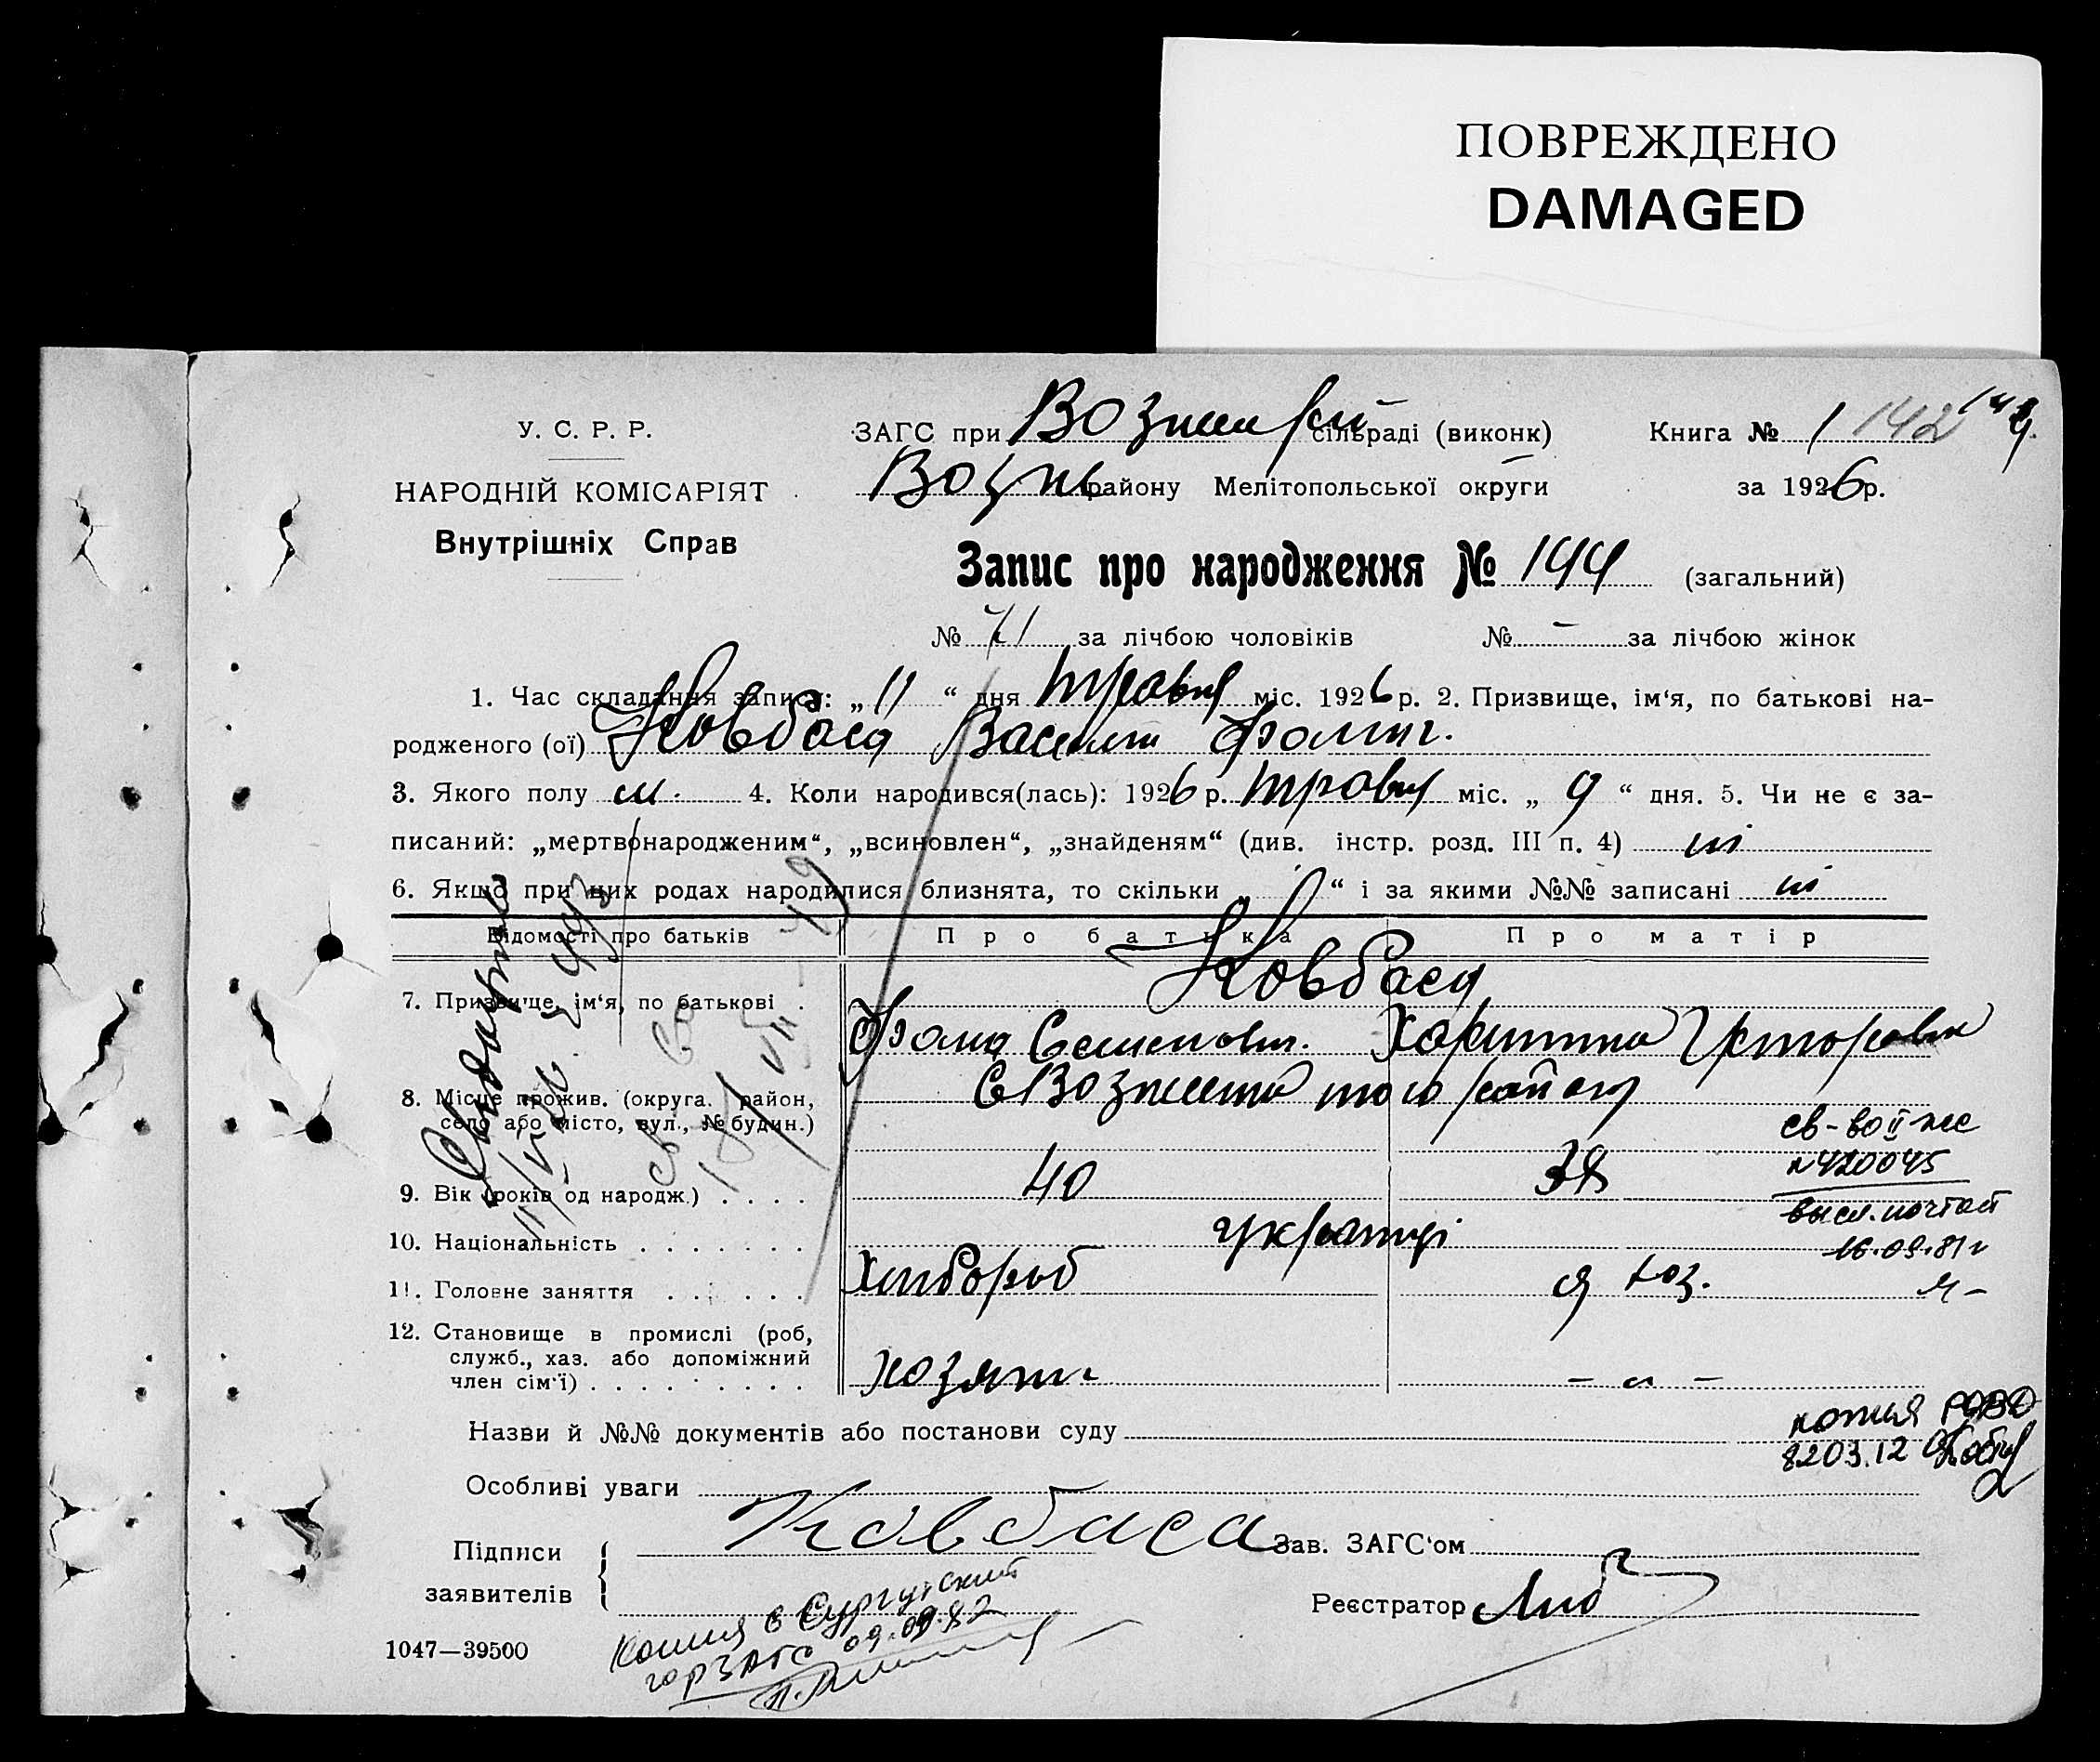 ПОВРЕЖДЕНО
DAMAGED
У. С. Р. Р. ЗАГС при сільраді (виконк) Книга № 1 142
НАРОДНІЙ КОМІСАРІЯТ району Мелітопольської округи за 1926 р.
Внутрішніх Справ
Запис про народження № 144 (загальний)
№ 71 за лічбою чоловіків № - за лічбою жінок
1. Час складання запису: „ 11 “ дня травня міс. 1926 р. 2. Призвище, ім‘я, по батькові на-
родженого (ої) Ковбаса Василь Фомич.
3. Якого полу м. 4. Коли народився(лась): 1926 р. травня міс. „ 9 “ дня. 5. Чи не є за-
писаний: „мертвонародженим“, „всиновлен“, „знайденям“ (див. інстр. розд. III п. 4) ні
6. Якщо при цих родах народилися близнята, то скільки „ “ і за якими №№ записані ні
Відомості про батьків Про батька Про матір
Ковбаса
7. Призвище, ім‘я, по батькові .
Фома Семенович.
8. Місце прожив. (округа. район,
село або місто, вул., № будин.)
св-во II
N 420045
9. Вік (років од народж.) . . . . 40 38
высл. почтой
10. Національність . . . . . . . українці
16.09.81г
11. Головне заняття . . . . . . Хлібороб
12. Становище в промислі (роб,
служб., хаз. або допоміжний
член сім‘ї) . . . . . . . . . хозяїн - " -
Назви й №№ документів або постанови суду
копия
8203.12
Особливі уваги
Підписи Ковбаса Зав. ЗАГС‘ом
заявителів
Реєстратор
Копия в Сургутский
горЗАГС 09.09.82
1047—39500